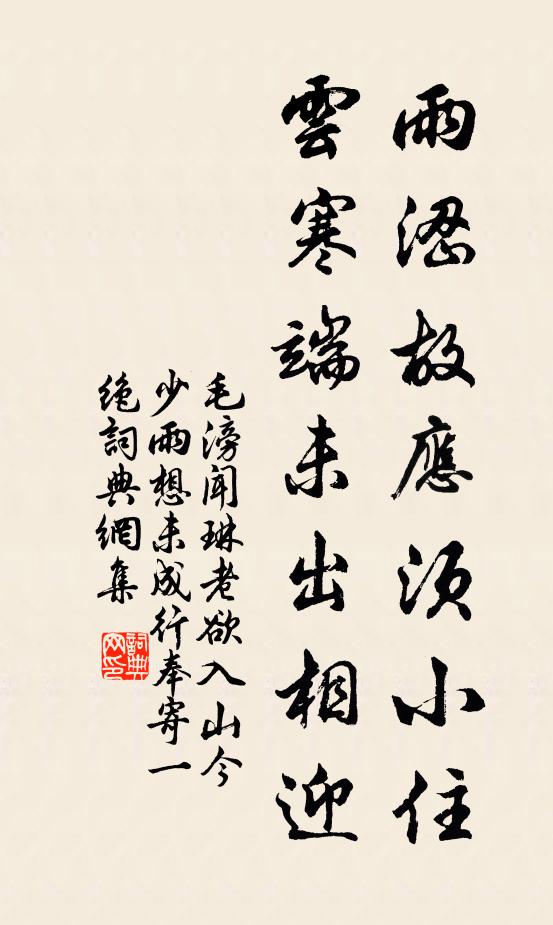 雨澀故應須小住
雲寒端未出相迎
毛滂聞琳老欲入山今
少雨想未成行奉寄一
絶詞典網集
詞典
网印